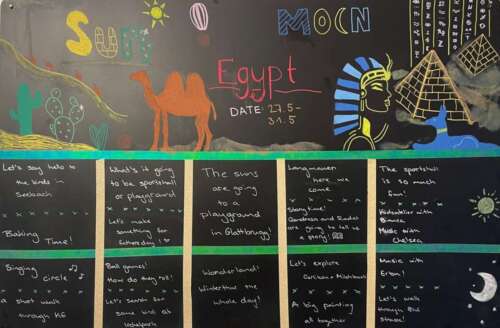 SUN
MOON
Egypt
DATE: 27.5-
31.5
Let's say hello to
the birds
Seebach
x x x x x x x
Baking Time!
What's it going
to be sportshall
or playground
x x x x x x x
Let's make
something for
Fathersday
The suns
are going
to a
playground
in Glattbrugg!
Longmauer
here we
come
x x x x x x
Storytime!
are going to tell us
a story
The sportshall
is so much
fun!
x x x x x x x
Bianca
Music with
Chelsea
Singing
circle
x x x x x x x
a short walk
through K6
Ball games!
How do they roll?
x x x x x x x
Let's search for
some
Wonderland!
Winterthur the
whole day!
Let's explore
x x x x x x
A big painting
all together
Music with
Erton!
x x x x x x
Let's walk
through